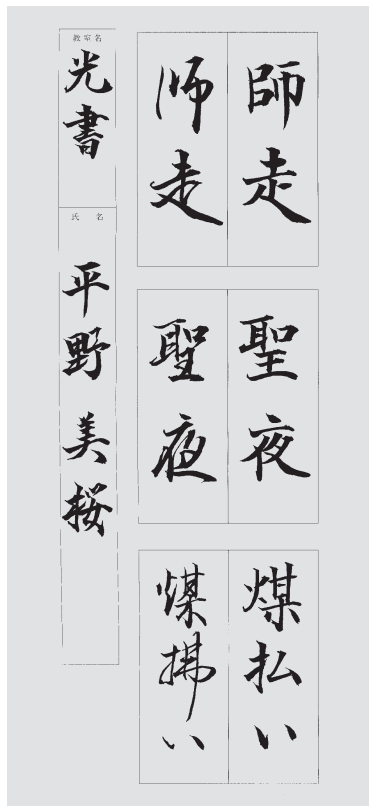 師走
師走
聖夜
聖夜
煤払い
煤拂い
教室名
光書
氏名
平野美桜